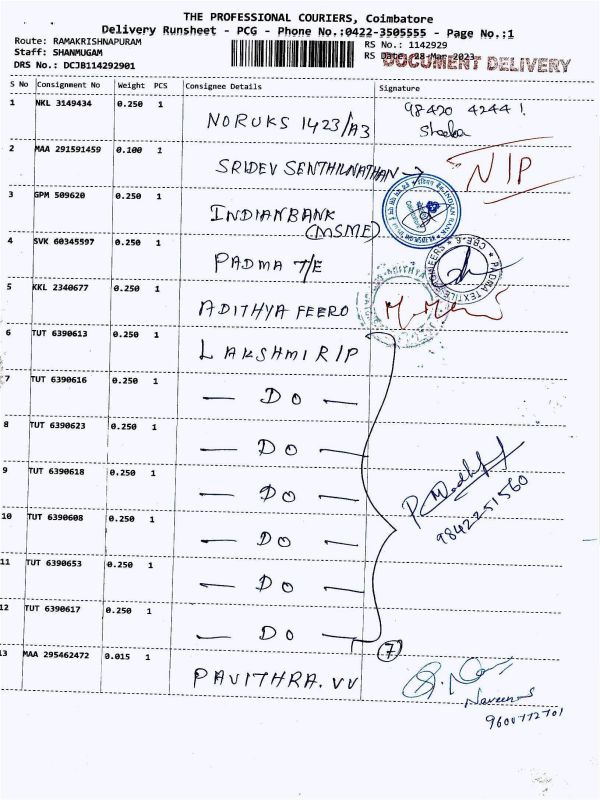 THE PROFESSIONAL COURIERS, Coimbatore
Delivery Runsheet - PCG - Phone No.:0422-3505555 - Page No.:1
Route: RAMAKRISHNAPURAM
Staff: SHANMUGAM
DRS No.: DCJB114292901
RS No.: 1142929
RS Date: 28-Mar-2023
DOCUMENT DELIVERY
S No Consignment No Weight PCS Consignee Details Signature
1 NKL 3149434 0.250 1 NORUKS 1423/A3 98420 42441
Sheeba
2 MAA 291591459 0.100 1 SRIDEV SENTHILNATHAN → N/P
3 GPM 509620 0.250 1 INDIANBANK
(MSME)
4 SVK 60345597 0.250 1 PADMA T/E
5 KKL 2340677 0.250 1 ADITHYA FEERO
6 TUT 6390613 0.250 1 LAKSHMI R/P
7 TUT 6390616 0.250 1 — DO —
8 TUT 6390623 0.250 1 — DO —
9 TUT 6390618 0.250 1 — DO —
10 TUT 6390608 0.250 1 — DO —
11 TUT 6390653 0.250 1 — DO —
12 TUT 6390617 0.250 1 — DO —
9842251560
7
13 MAA 295462472 0.015 1 PAVITHRA. VV
Naveen
9600772701